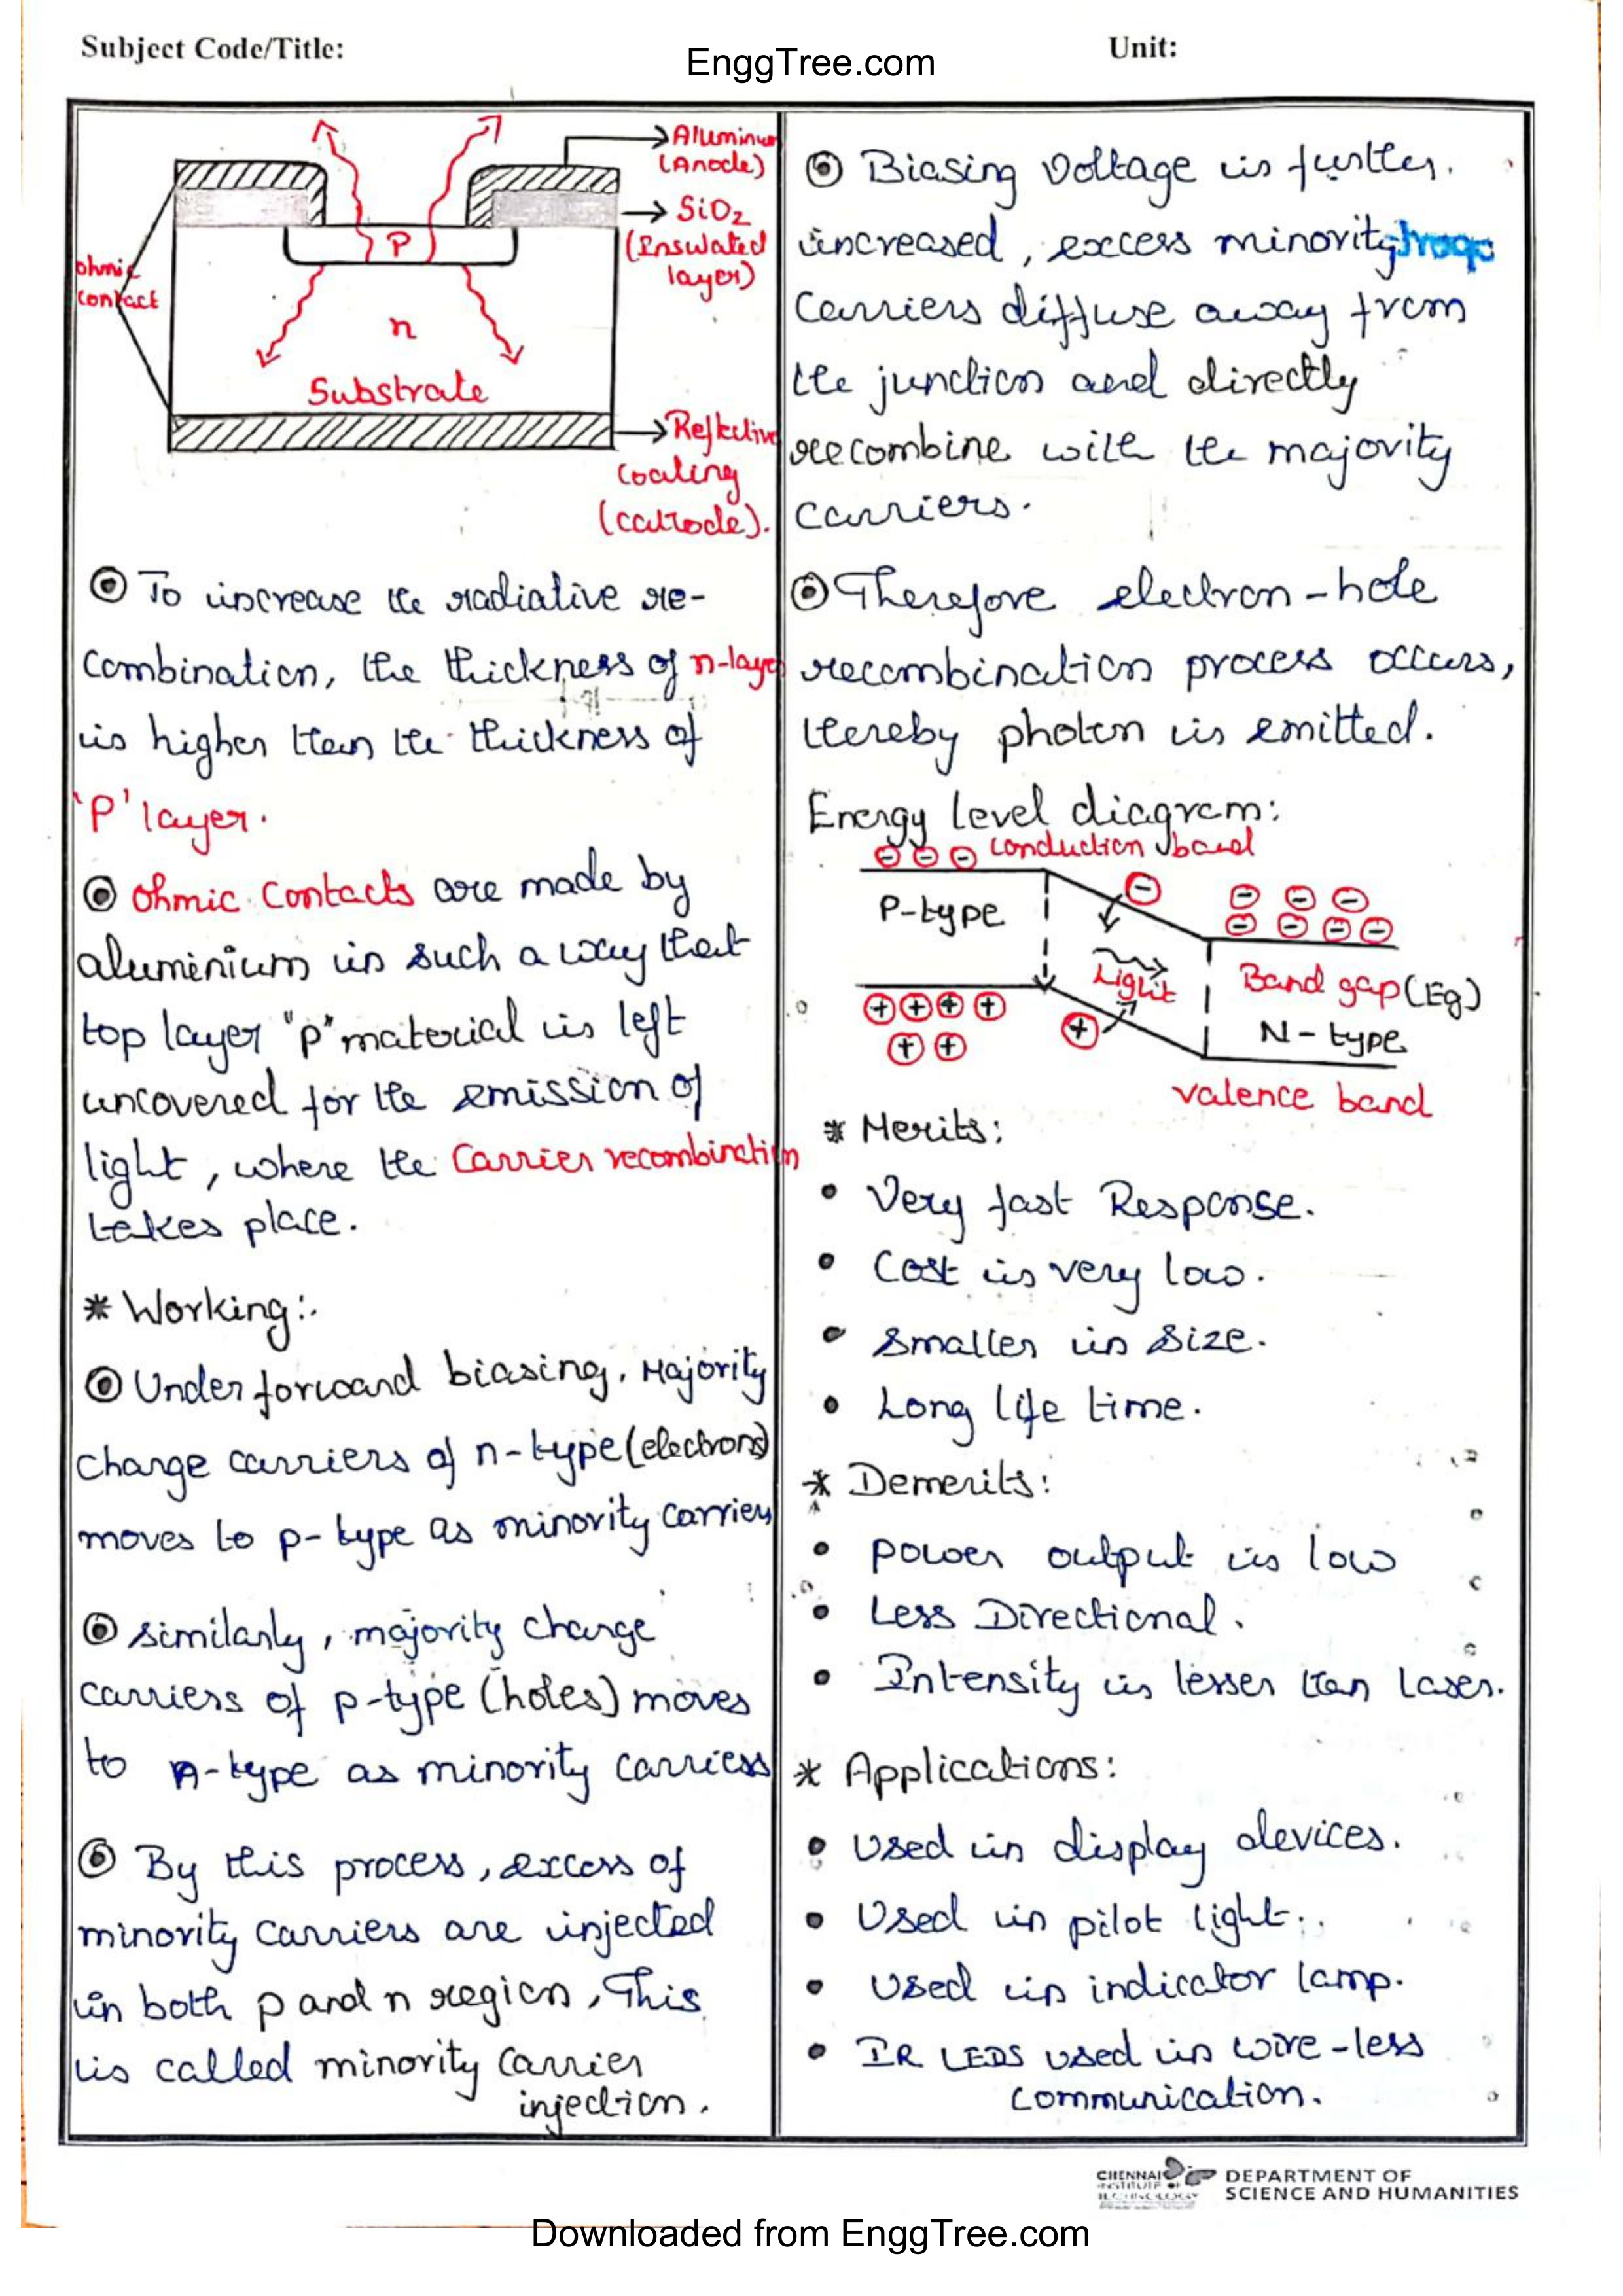 Subject Code/Title:
EnggTree.com
Unit:
Aluminum
(Anode)
SiO2
(Insulated
layer)
P
ohmic
contact
n
Substrate
Reflective
coating
(cathode).
To increase the radiative re-
combination, the thickness of n-layer
is higher than the thickness of
'P' layer.
ohmic contacts are made by
aluminium in such a way that
top layer "p" material is left
uncovered for the emission of
light, where the Carrier recombination
takes place.
* Working:
Under forward biasing, Majority
change carriers of n-type (electrons)
moves to p-type as minority carriers
similarly, majority change
carriers of p-type (holes) moves
to n-type as minority carriers
By this process, excess of
minority carriers are injected
in both p and n region, This
is called minority carrier
injection.
Biasing voltage is further
increased, excess minority
carriers diffuse away from
the junction and directly
recombine with the majority
carriers.
Therefore electron-hole
recombination process occurs,
thereby photon is emitted.
Energy level diagram:
conduction band
P-type
Light
Band gap (Eg)
N-type
valence band
* Merits:
• Very fast Response.
• Cost is very low.
• Smaller in size.
• Long life time.
* Demerits:
• power output is low
• Less Directional.
• Intensity is lesser than laser.
* Applications:
• Used in display devices.
• Used in pilot light.
• Used in indicator lamp.
• IR LEDS used in wire-less
communication.
CHENNAI
INSTITUTE OF
TECHNOLOGY
DEPARTMENT OF
SCIENCE AND HUMANITIES
Downloaded from EnggTree.com